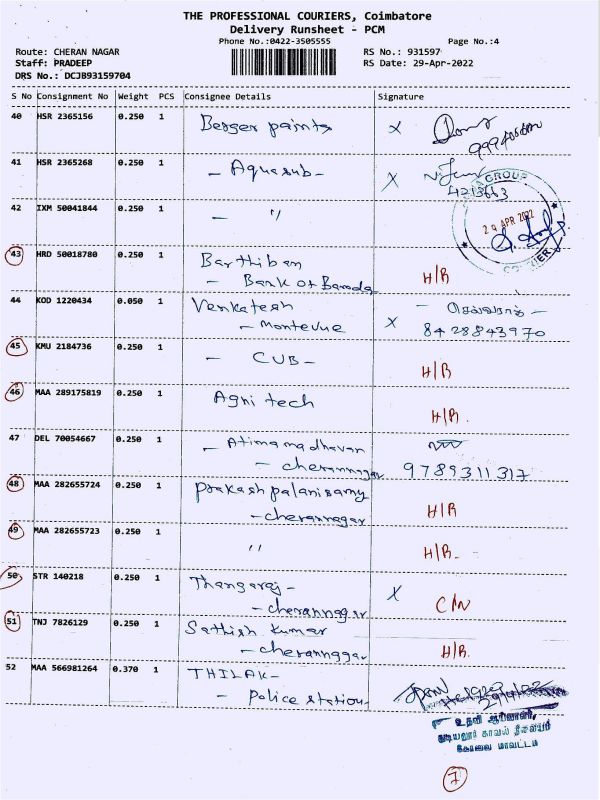 THE PROFESSIONAL COURIERS, Coimbatore
Delivery Runsheet - PCM
Phone No.:0422-3505555 Page No.:4
Route: CHERAN NAGAR RS No.: 931597
Staff: PRADEEP RS Date: 29-Apr-2022
DRS No.: DCJB93159704
S No Consignment No Weight PCS Consignee Details Signature
40 HSR 2365156 0.250 1 Berger paints X
41 HSR 2365268 0.250 1 - Aquasub - X
4213663
GROUP
42 IXM 50041844 0.250 1 - 〃
29 APR 2022
43 HRD 50018780 0.250 1 Barthiban
- Bank of Baroda H/R
44 KOD 1220434 0.050 1 Venkatesh
- Montevue X 8428843970
45 KMU 2184736 0.250 1 - CUB - H/R
46 MAA 289175819 0.250 1 Agni tech H/R.
47 DEL 70054667 0.250 1 - Atimamadhavan
- cherannagar 9789311317
48 MAA 282655724 0.250 1 Prakash palanisamy
- cherannagar H/R
49 MAA 282655723 0.250 1 〃 H/R-
50 STR 140218 0.250 1 Thangaraj -
- cherannagar X C/N
51 TNJ 7826129 0.250 1 Sathish Kumar
- cherannagar H/R.
52 MAA 566981264 0.370 1 THILAK -
- Police station
உதவி ஆய்வாளர்,
துடியலூர் காவல் நிலையம்
கோவை மாவட்டம்
7